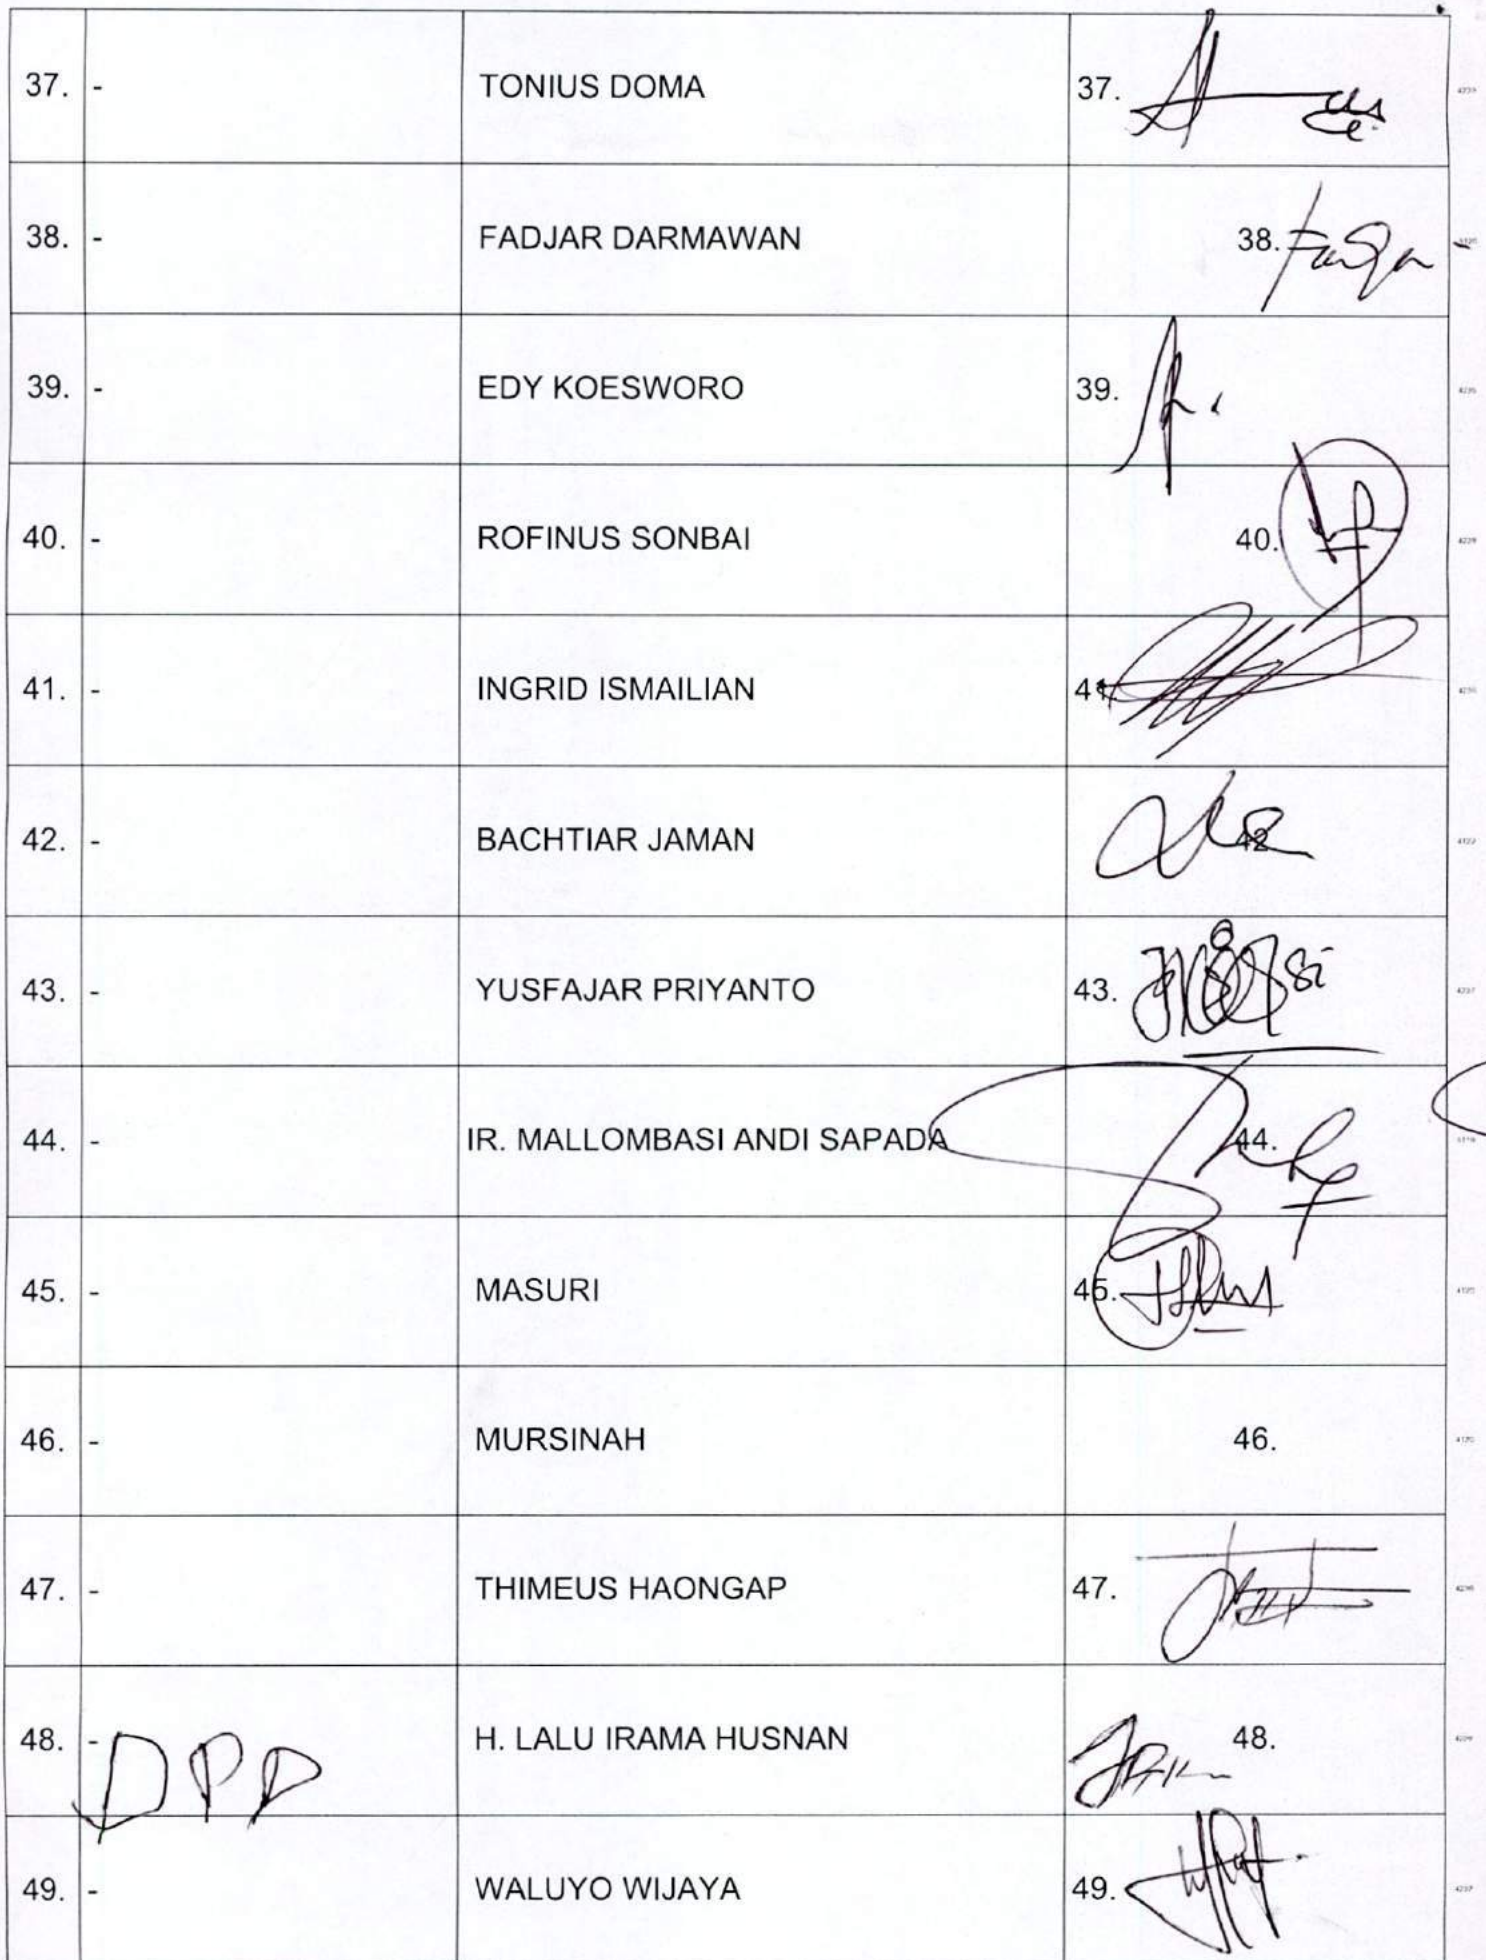 37. - TONIUS DOMA 37.
38. - FADJAR DARMAWAN 38.
39. - EDY KOESWORO 39.
40. - ROFINUS SONBAI 40.
41. - INGRID ISMAILIAN 41.
42. - BACHTIAR JAMAN 42
43. - YUSFAJAR PRIYANTO 43.
44. - IR. MALLOMBASI ANDI SAPADA 44.
45. - MASURI 45.
46. - MURSINAH 46.
47. - THIMEUS HAONGAP 47.
48. - DPD H. LALU IRAMA HUSNAN 48.
49. - WALUYO WIJAYA 49.